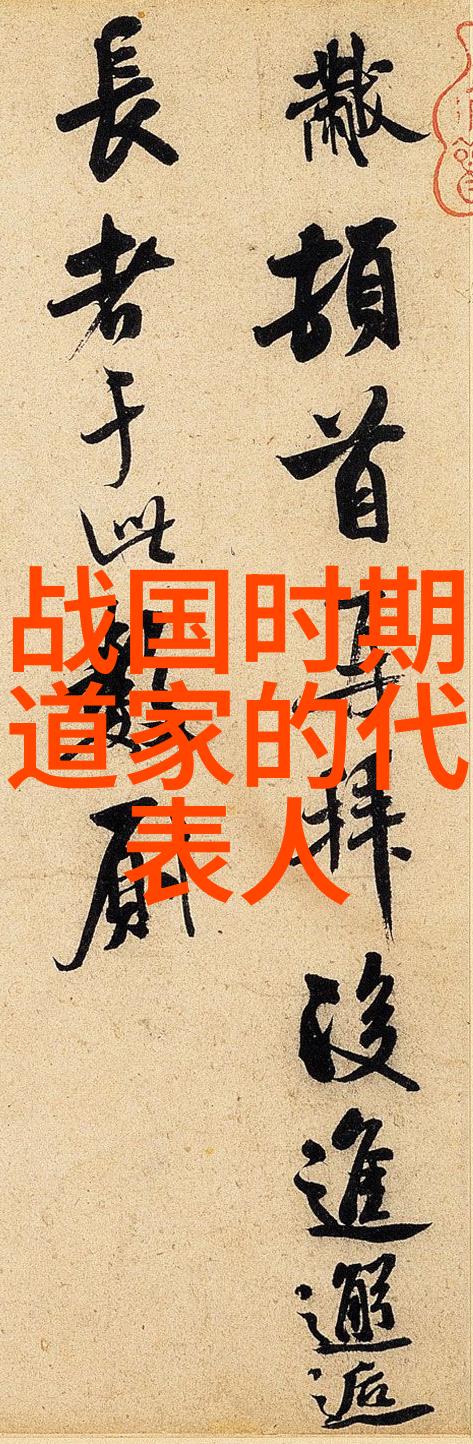 黻頓首再拜後進邂逅
長者于此數厠
战国时期
道家的代
表人